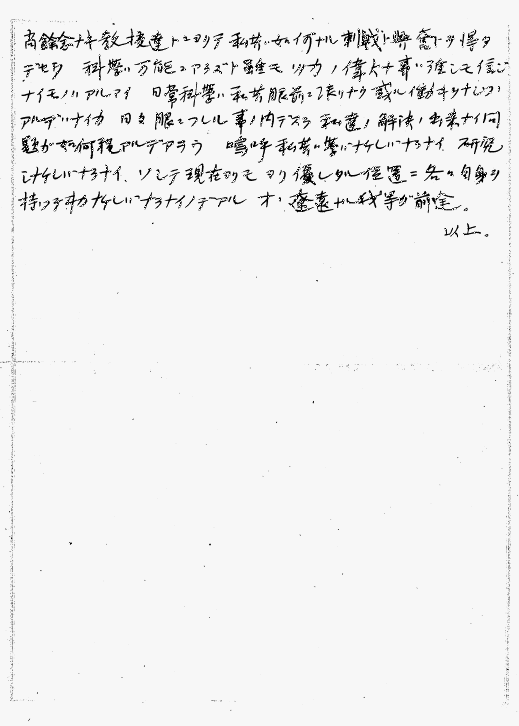 尚餘念ナキ教授達ニヨリテ私共ハ如何ナル刺戟ト興奮トヲ得タ
デセウ 科學ハ万能ニアラズト雖モ ソノ力ノ偉大ナ事ハ誰シモ信ジ
ナイモノハアルマイ 日常科學ハ私共眼前ニ来リナリ或ル働キヲナシツヽ
アルデハナイカ 日々眼ニフレル事ノ内デスラ私達ノ解決ノ出来ナイ問
題が如何程アルデアラウ 嗚呼私共ハ學バナケレバナラナイ 研究
シナケレバナラナイ、ソシテ現在ヨリモヨリ優レタル位置ニ各々自身ヲ
持ツテ行カナケレバナラナイノデアル オヽ遼遠ナル我等が前途。
以上。